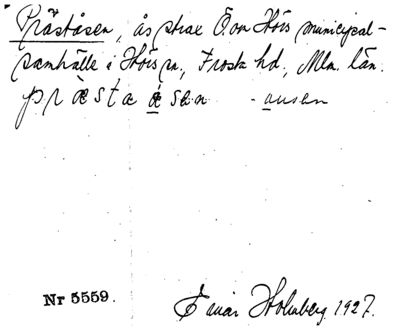 Präståsen, ås strax Ö. om Hörs municipal-
samhälle i Hörs sn, Frosta hd., Mlm. län.
præsta åsen - ausen
Nr 5559.
Einar Holmberg 1927.